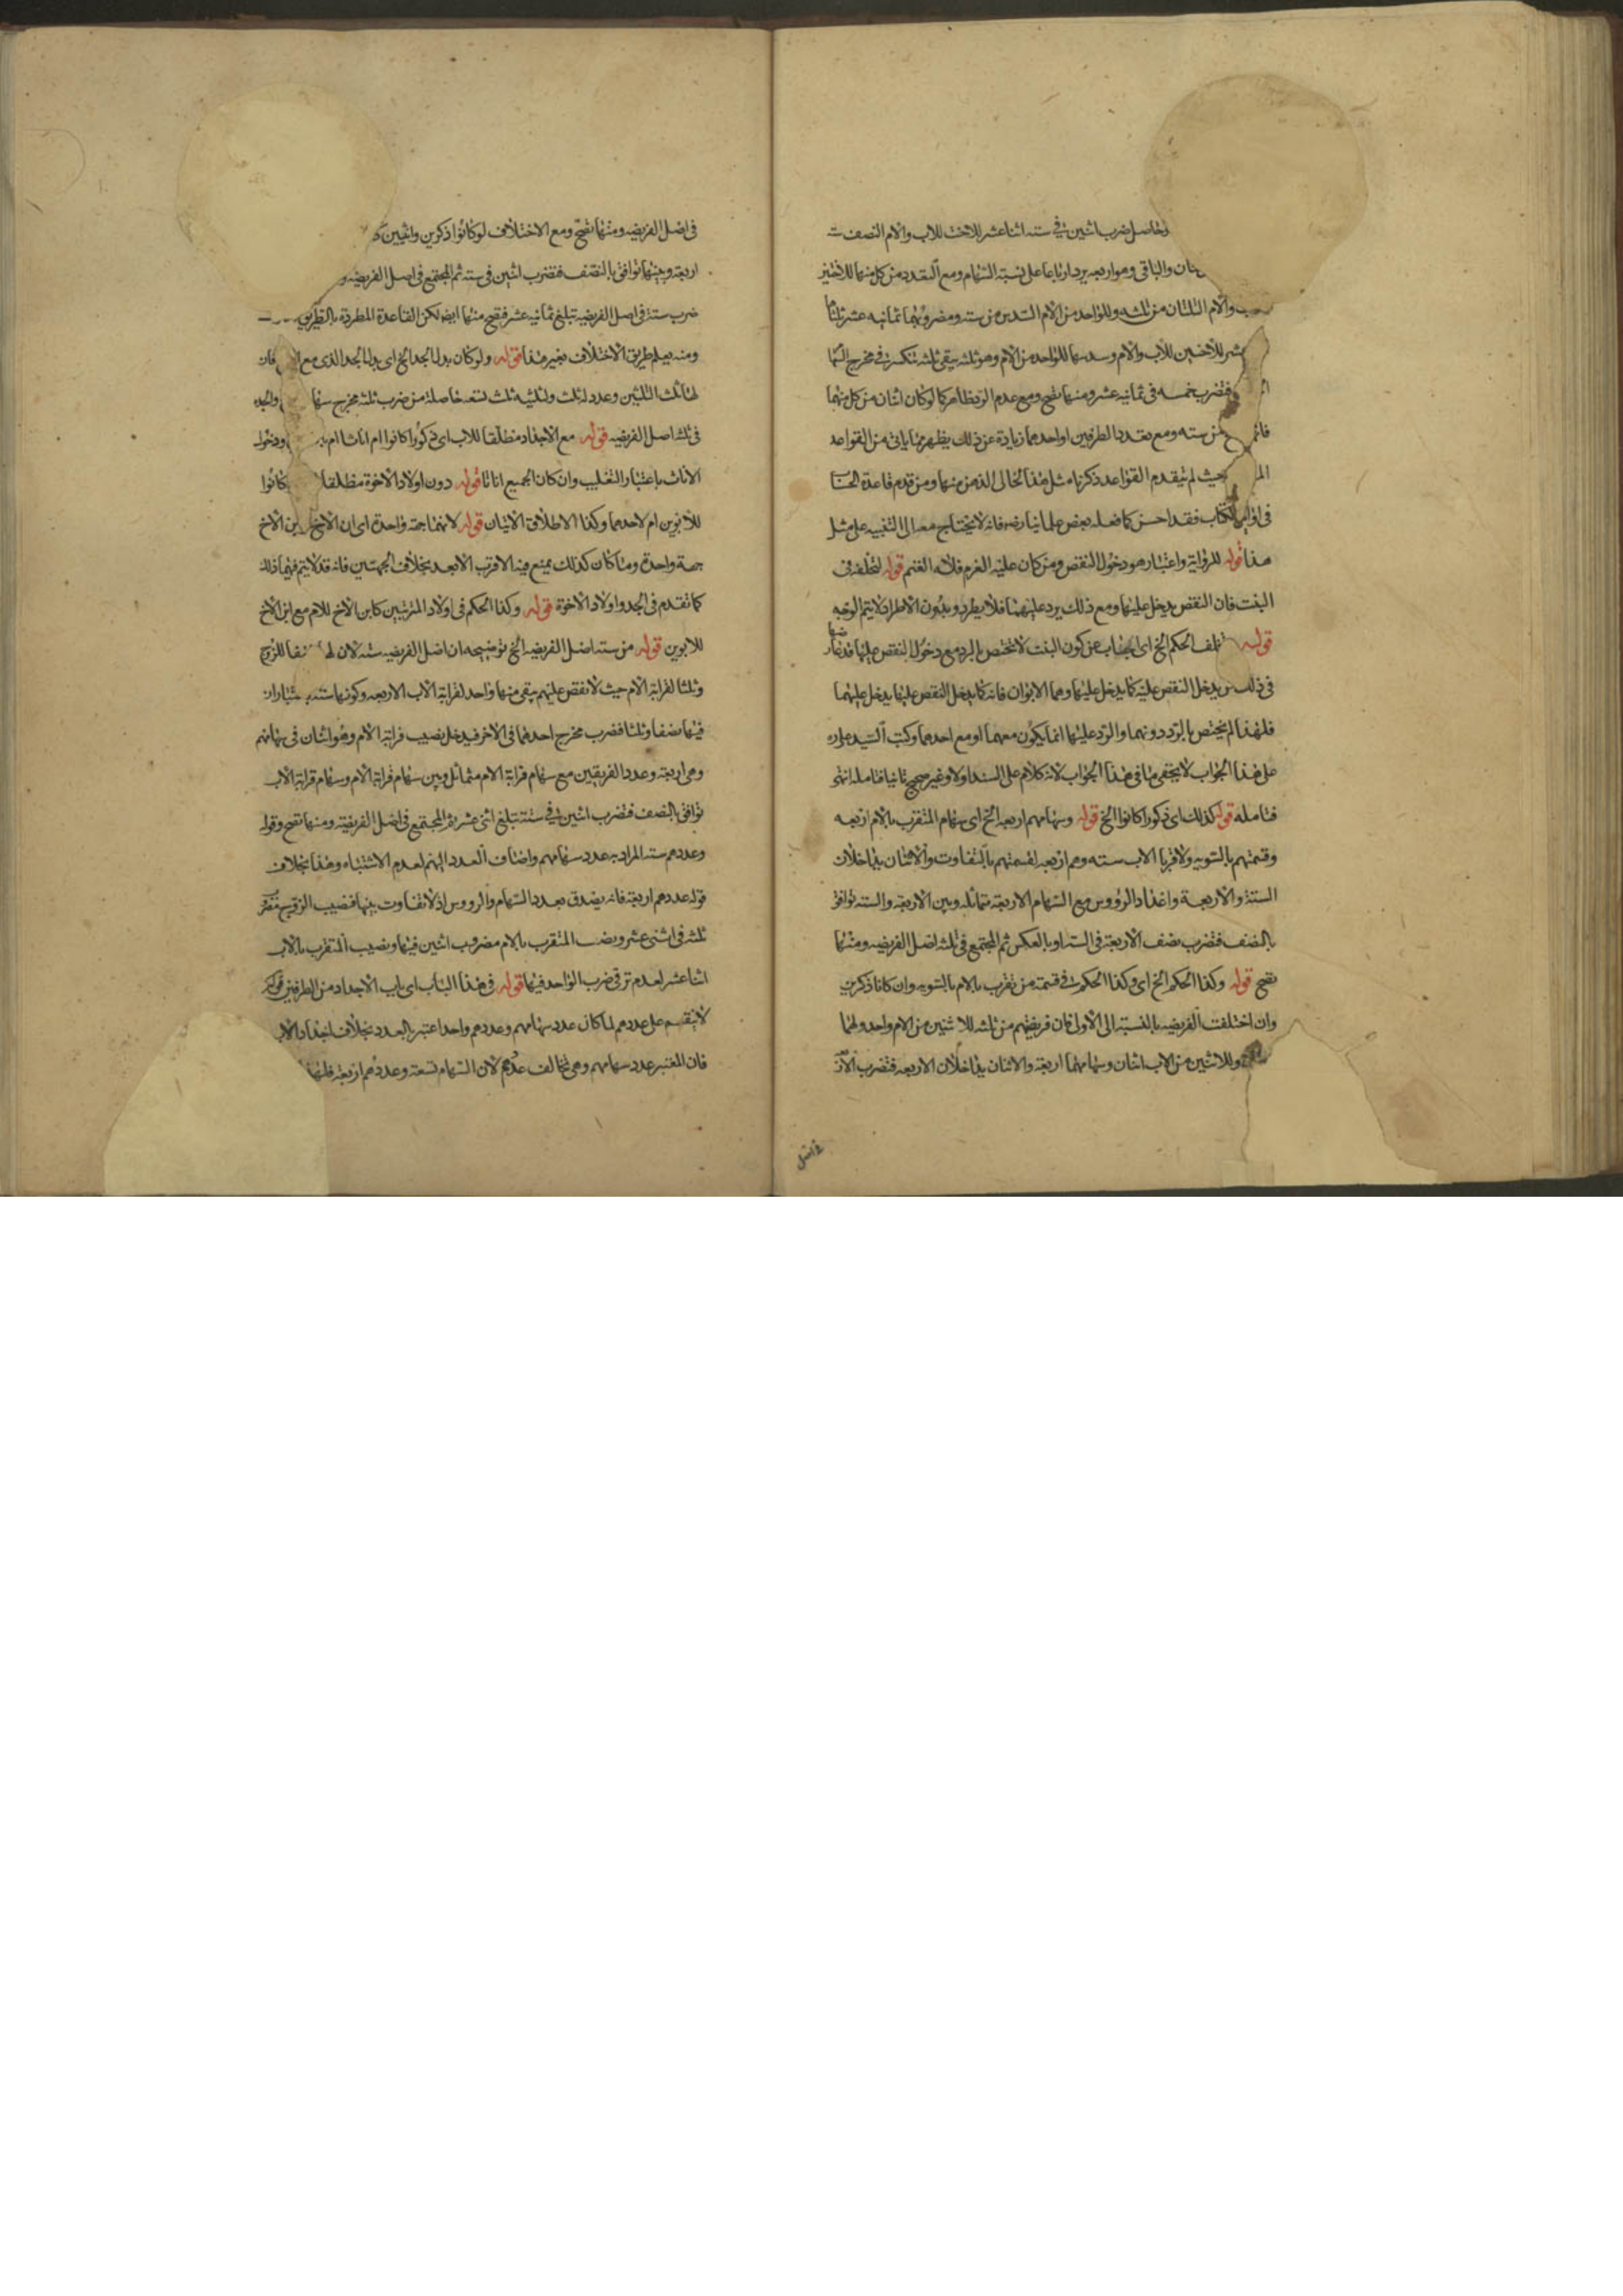 وحاصل ضرب اثنين في سته اثنا عشر للاخت للاب والام النصف ستة
والباقى وهو اربعه يرد ارباعا على نسبة السهام ومع التعدد من كل منهما للاختين
والام الثلثان من ثلثه وللواحد من الام السدس من سته ومضروبهما ثمانيه عشر ثلثاها
عشر للاختين للاب والام وسدسها للواحد من الام وهو ثلثه يبقى ثلثه تنكسر في مخرج السهام
فتضرب خمسه فى ثمانيه عشر ومنها تصح ومع عدم الرد ظاهر كما لو كان اثنان من كل منهما
من سته ومع تعدد الطرفين او احدهما زيادة عن ذلك يظهر مما ياتى من القواعد
حيث لم يتقدم القواعد ذكرنا مثل هذا لخالى الذهن منها ومن قدم قاعدة الحساب
فى اوايل الكتاب فقد احسن كما فعله بعض علمائنا رضه فانه لا يحتاج معه الى التنبيه على مثل
هذا قوله للرواية واعتبار هو دخول النقص ومن كان عليه الغرم فله الغنم قوله لتخلفه فى
البنت فان النقص يدخل عليها ومع ذلك يرد عليهما فلا يطرد وبدون الاطراد لا يتم الوجه
قوله تخلف الحكم الخ اى يجاب عن كون البنت لا تختص بالرد مع دخول النقص عليها قد عارضها
فى ذلك من يدخل النقص عليه كما يدخل عليها وهما الابوان فانه كما يدخل النقص عليها يدخل عليهما
فلهذا لم يختص بالرد دونهما والرد عليها انما يكون معهما او مع احدهما وكتب السيد على ره
على هذا الجواب لا يخفى ما فى هذا الجواب لانه كلام على السند اولا وغير صحيح ثانيا فتامله انتهى
فتامله قوله كذلك اى ذكورا كانوا الخ قوله وسهامهم اربعه الخ اى سهام المتقرب بالام اربعه
وقسمتهم بالسويه ولاقربا الاب سته وهم اربعه لقسمتهم بالتفاوت والاثنان يتداخلان
الستة والاربعة واعداد الرؤوس مع السهام الاربعة متماثله وبين الاربعة والسته توافق
بالنصف فتضرب نصف الاربعة فى السته او بالعكس ثم المجتمع فى ثلثه اصل الفريضه ومنها
تصح قوله وكذا الحكم الخ اى وكذا الحكم فى قسمة من تقرب بالام بالسويه وان كانا ذكرين
وان اختلفت الفريضه بالنسبة الى الاولى فان فريضتهم من ثلثه للاثنين من الام واحد ولهما
وللاثنين من الاب اثنان وسهامهما اربعة والاثنان يتداخلان الاربعه فتضرب الاربعة
فى اصل
فى اصل الفريضه ومنها تصح ومع الاختلاف لو كانوا ذكرين وانثيين
اربعة وبينهما توافق بالنصف فتضرب اثنين فى سته ثم المجتمع فى اصل الفريضه و
ضرب ستة فى اصل الفريضه تبلغ ثمانيه عشر فتصح منها ايضا لكن القاعدة المطردة بالطريق
ومنه يعلم طريق الاختلاف بغير هذا قوله ولو كان بدل الجد الخ اى بدل الجد الذى مع فان
لها ثلث الثلثين وعدد له ثلث ولثلثيه ثلث تسعه حاصلة من ضرب ثلثه مخرج سهام والجده
فى ثلثه اصل الفريضه قوله مع الاجداد مطلقا للاب اى ذكورا كانوا ام اناثا ام ودخول
الاناث باعتبار التغليب وان كان الجميع اناثا قوله دون اولاد الاخوة مطلقا كانوا
للابوين ام لاحدهما وكذا الاطلاق الاتيان قوله لانهما جهة واحدة اى ان الاخ وابن الاخ
جهة واحدة وما كان كذلك يمنع فيه الاقرب الابعد بخلاف الجهتين فانه قد لا يتم فيهما ذلك
كما تقدم فى الجد واولاد الاخوة قوله وكذا الحكم فى اولاد المرتبين كابن الاخ للام مع ابن الاخ
للابوين قوله من سته اصل الفريضه الخ توضيحه ان اصل الفريضه سته لان لها نصفا للزوج
وثلثا لقرابة الام حيث لا نقص عليهم يبقى منها واحد لقرابة الاب الاربعه وكونها ستة باعتبار ان
فيها نصفا وثلثا فضرب مخرج احدهما فى الاخر فيدخل نصيب قرابة الام وهو اثنان فى سهامهم
وهى اربعة وعدد الفريقين مع سهام قرابة الام متماثل وبين سهام قرابة الام وسهام قرابة الاب
توافق بالنصف فتضرب اثنين فى ستة تبلغ اثنى عشر ثم المجتمع فى اصل الفريضة ومنها تصح وقوله
وعددهم سته المراد به عدد سهامهم واضاف العدد اليهم لعدم الاشتباه وهذا بخلاف
قوله عددهم اربعة فانه يصدق بعدد السهام والرووس اذ لا تفاوت بينها فنصيب الزوج مضروب
ثلثه فى اثنى عشر ونصيب المتقرب بالام مضروب اثنين فيها ونصيب المتقرب بالاب
اثنا عشر لعدم ترقى ضرب الواحد فيها قوله فى هذا الباب اى باب الاجداد من الطرفين قوله
لا ينقسم على عددهم لما كان عدد سهامهم وعددهم واحدا عتبر بالعدد بخلاف اجداد الاب
فان المعتبر عدد سهامهم وهى تخالف عددهم لان السهام تسعة وعددهم اربعة فلهذا